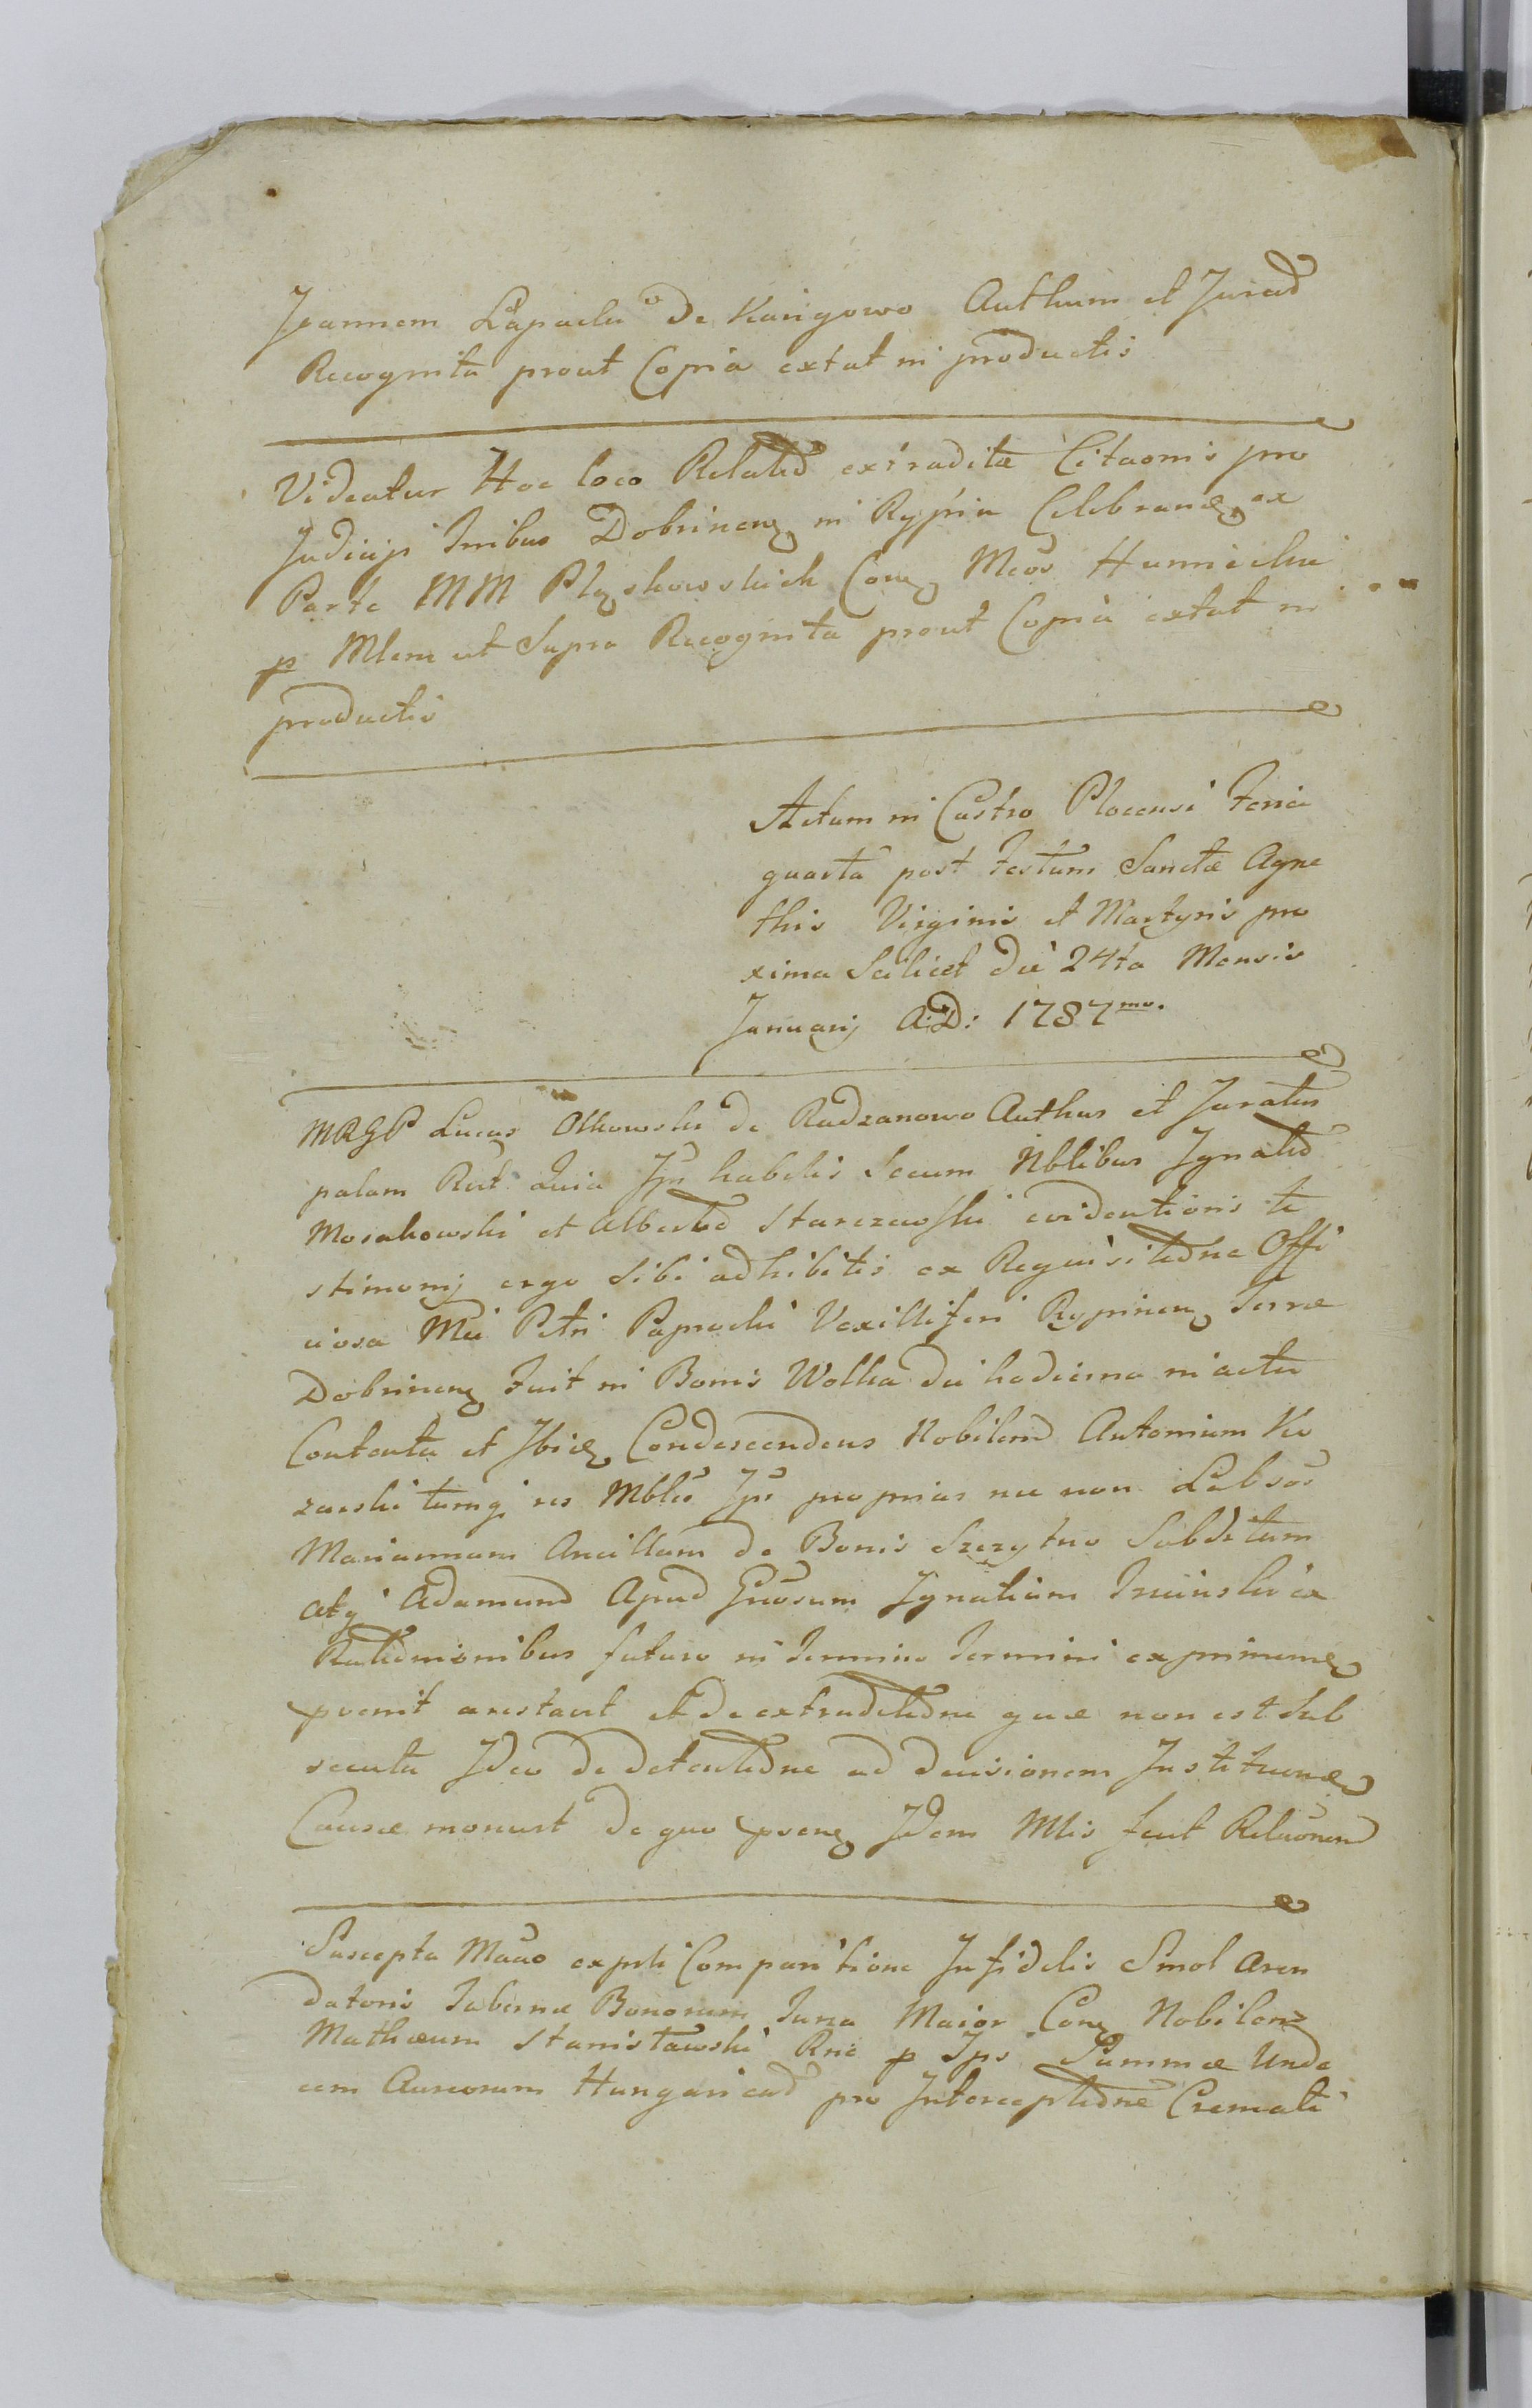 Joannem Łapacki de Karigowo Authum et Jurad
Recognita prout Copia extat in productis
Videatur Hoc loco Relatio extraditæ Citaonis pro
Judicijs Tribus Dobrinen in Rypin Celebrand ex
Parte MM Plęskowskich Con Mcos Humiecki
p Mlem ut Supra Recognita prout Copia extat in
productis
Actum in Castro Plocensi Feria
quarta post Festum Sanctæ Agne
this Virginis et Martyris pro
xima Scilicet die 24ta Mensis
Januarij A:D: 1787mo.
MRGP Lucas Olkowski de Radzanowo Authus et Juratus
palam Rut Quia Ips habitis Secum Nblibus Ignatio
Mosakowski et Alberto Starczewski evidentioris te
stimonij ergo Sibi adhibitis ex Requisitione Offi
ciosa Mci Petri Paprocki Vexilliferi Rypinen Terræ
Dobrinen Fuit in Bonis Wolka die hodierna in actu
Contenta et Ibid Condescendens Nobilem Antonium Ko
zarski tumq res Mbles Ips proprias nec non Labsos
Mariannam Ancillam de Bonis Szczytno Subditam
atq Adamum Apud Gnosum Ignatium
Rationionibus futuro in Termino Termini exprimen
pvenit arestavit et de extraditione quæ non est Sub
secuta Ideo de detentione ad decisionem Instituen
Causæ monuit de quo psens Idem Mlis fecit Relaonem
Suscepta Mauo expsti Comparitione Infidelis Smol Aren
datoris Tabernæ Bonorum Maior Con Nobilem
Mathæum Stanisławski Rne p Ips Summæ Unde
cem Aureorum Hungaricad pro Interceptione Cremati